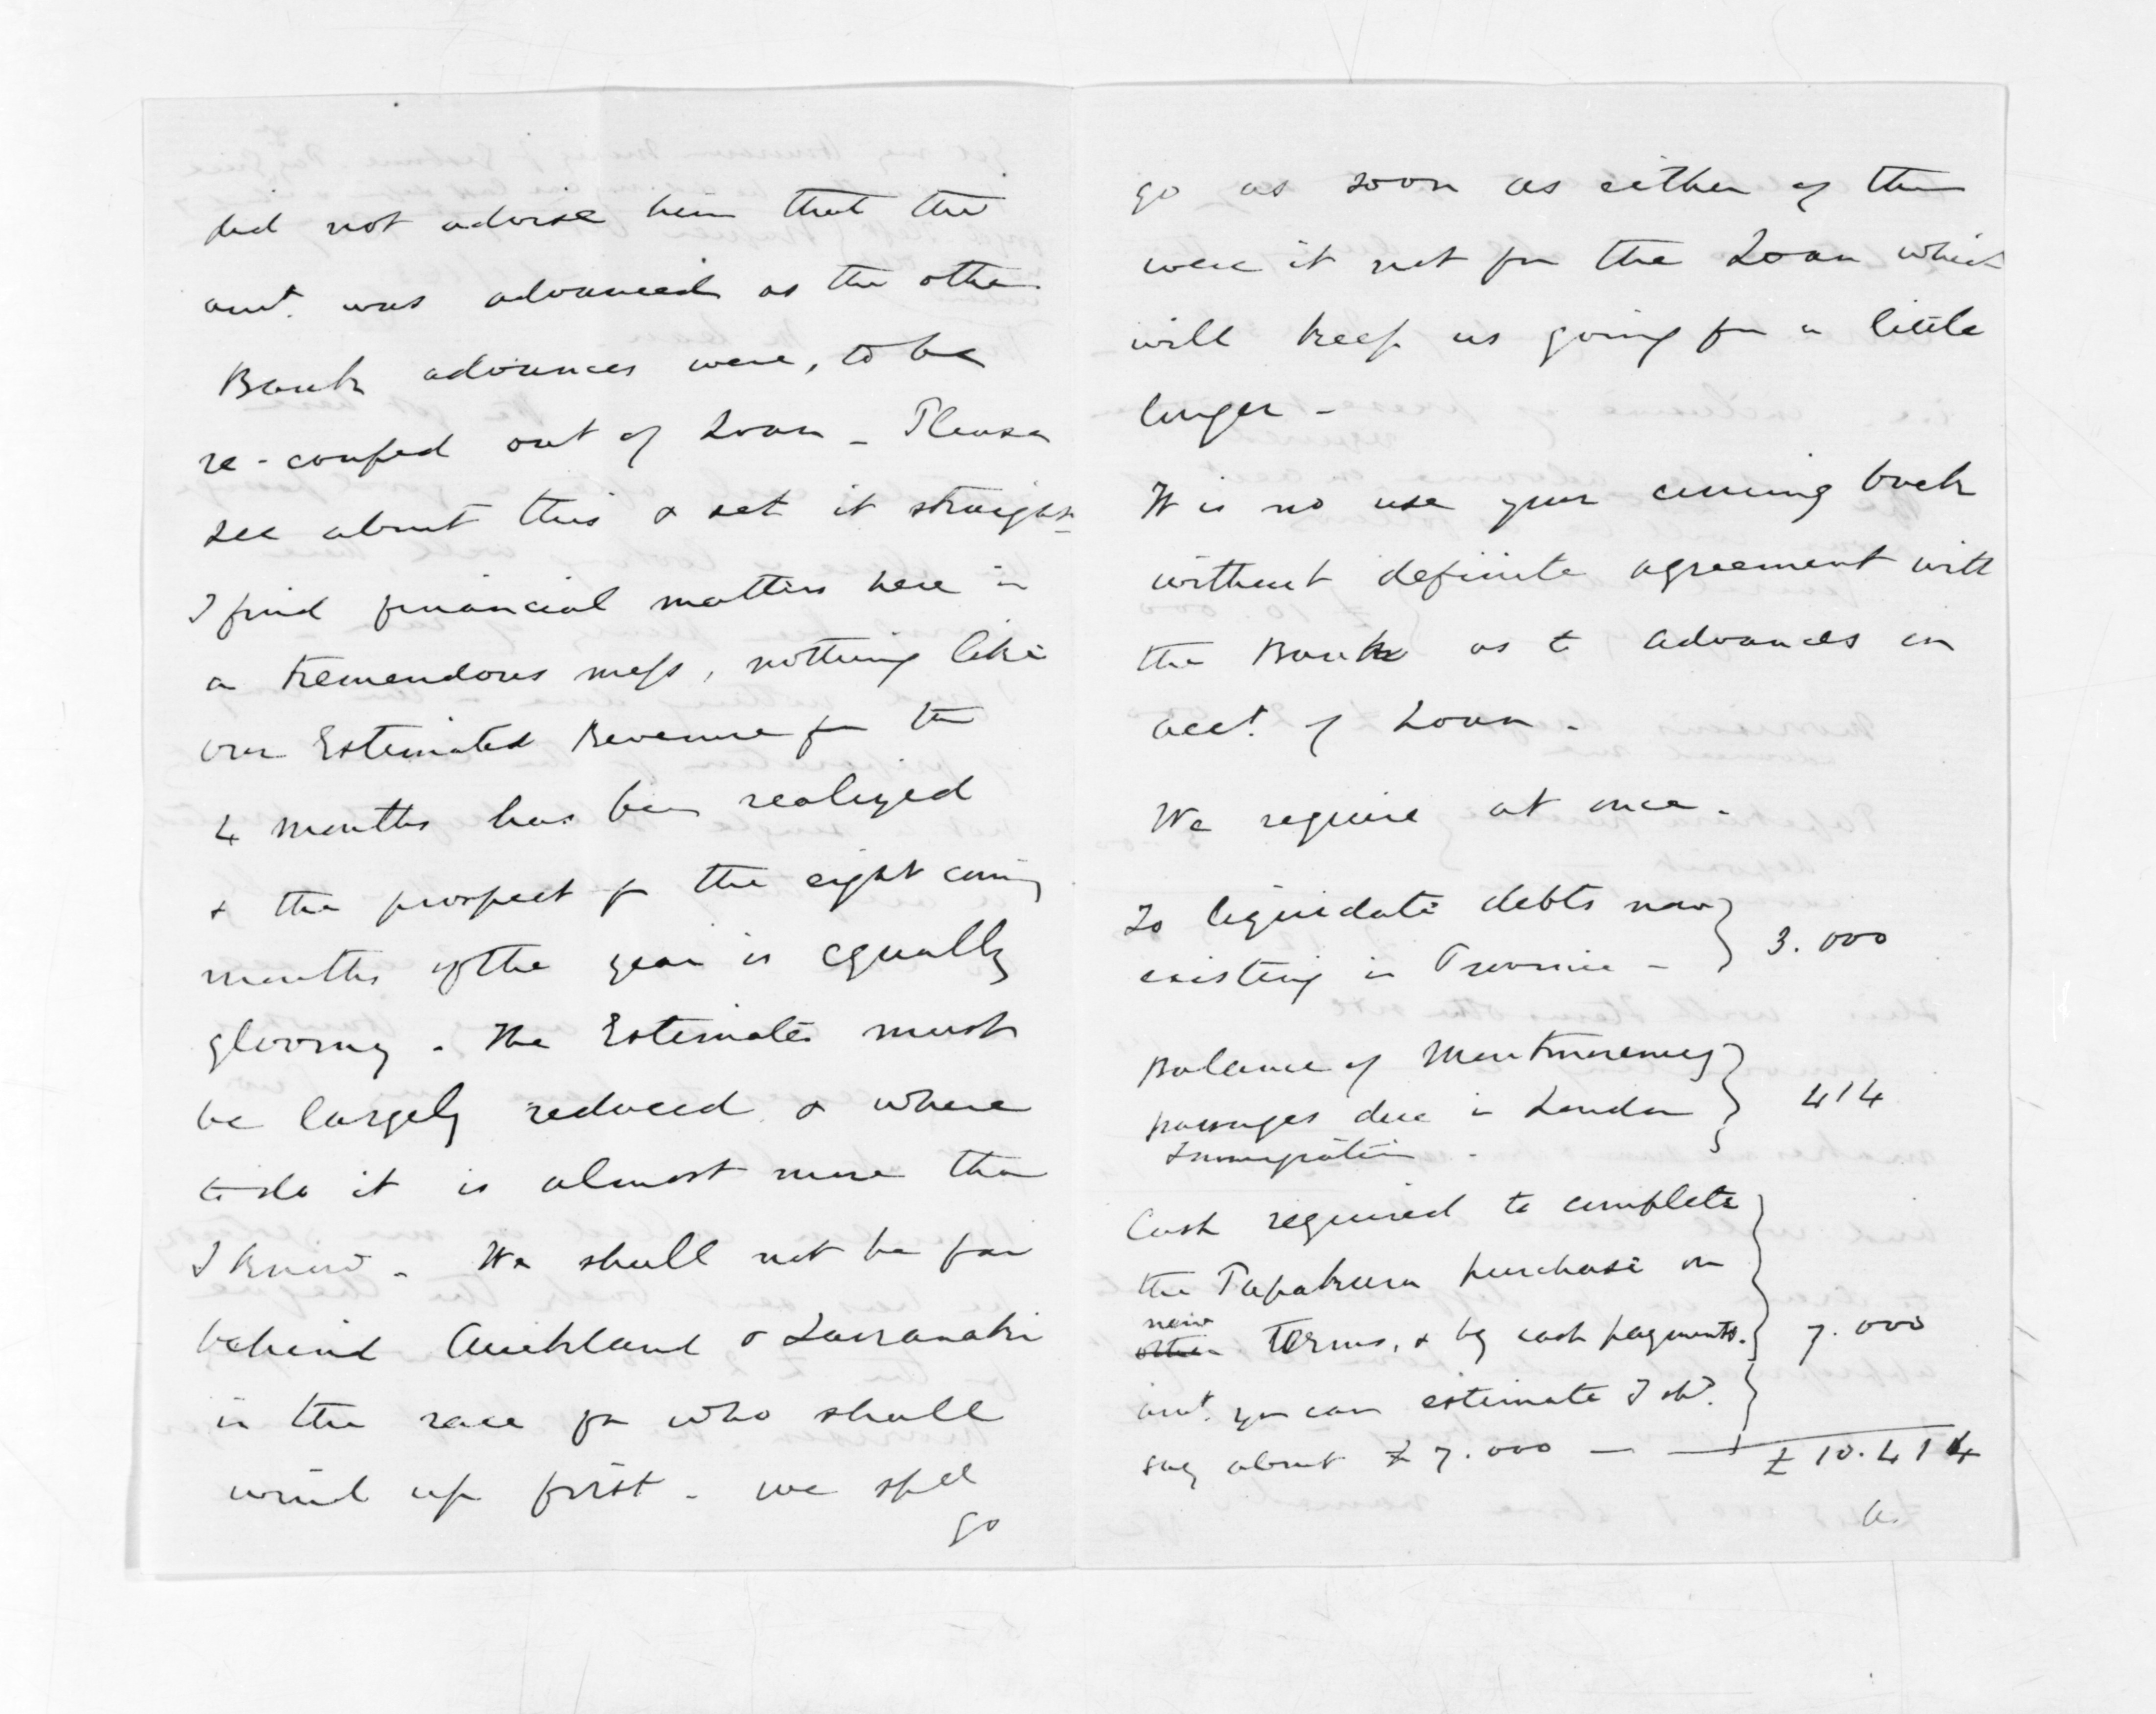 did not advise him that this
amt. was advanced as the other
Bank advances were, to be
re-couped out of Loan - Please
see about this & set it straight -
I find financial matters here in
a tremendous mess, nothing like
our Estimated Revenue for the
4 months has been realized
& the prospect for the eight coming
months of the year is equally
gloomy. The Estimates must
be largely reduced & where
to do it is almost more than
I know - We shall not be far
behind Auckland & Taranaki
in the race for who shall
wind up first - we shd
go
go as soon as either of them
were it not for the Loan which
will keep us going for a little
longer -
It is no use your coming back
without definite agreement with
the Bank as to advances on
acct. of Loan -
We require at once -
To liquidate debts now
existing in Province - } 3.000
Balance of Montmorency
passages due in London } 414
Immigration -
Cash required to complete
the Tapakura purchase on
new
other terms, & by cash payments. } 7.000
amt. you can estimate I shd.
say about £7.000 — — £10.414